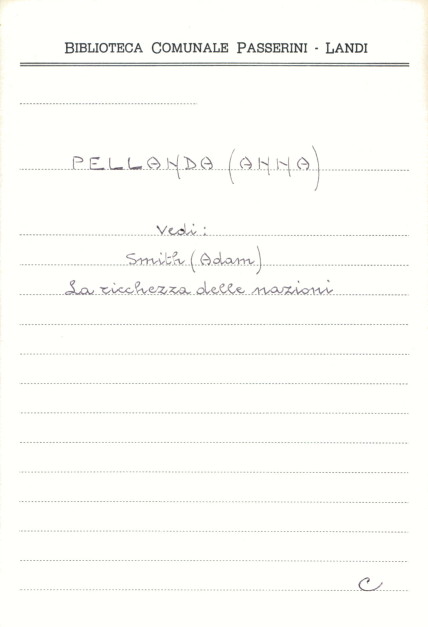 BIBLIOTECA COMUNALE PASSERINI - LANDI
PELLANDA (ANNA)
Vedi:
Smith (Adam)
La ricchezza delle nazioni
C